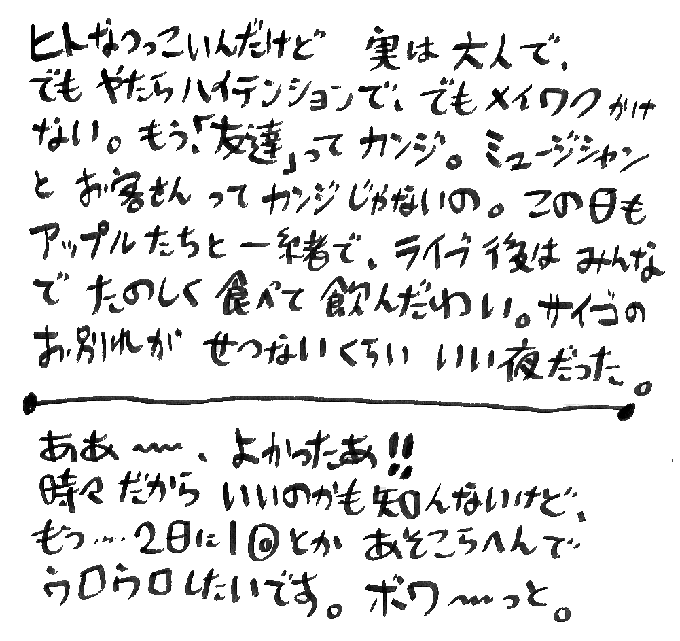 ヒトなつっこいんだけど 実は大人で、
でもやたらハイテンションで、でもメイワクかけ
ない。もう、「友達」ってカンジ。ミュージシャン
とお客さんってカンジじゃないの。この日も
アップルたちと一緒で、ライブ後はみんな
でたのしく食べて飲んだわい。サイゴの
お別れがせつないくらいいい夜だった。
ああ〜〜、よかったあ!!
時々だからいいのかも知んないけど、
もっ…2日に1回とかあそこらへんで
ウロウロしたいです。ボワ〜〜っと。